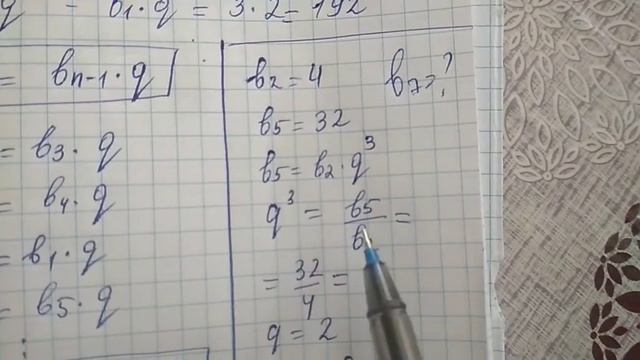 q - b₁ · q = 3 · 2 = 192
= bₙ₋₁ · q
= b₃ · q
= b₄ · q
= b₁ · q
= b₅ · q
b₂ = 4 b₇ = ?
b₅ = 32
b₅ = b₂ · q³
q³ = b₅ / b =
= 32 / 4 =
q = 2